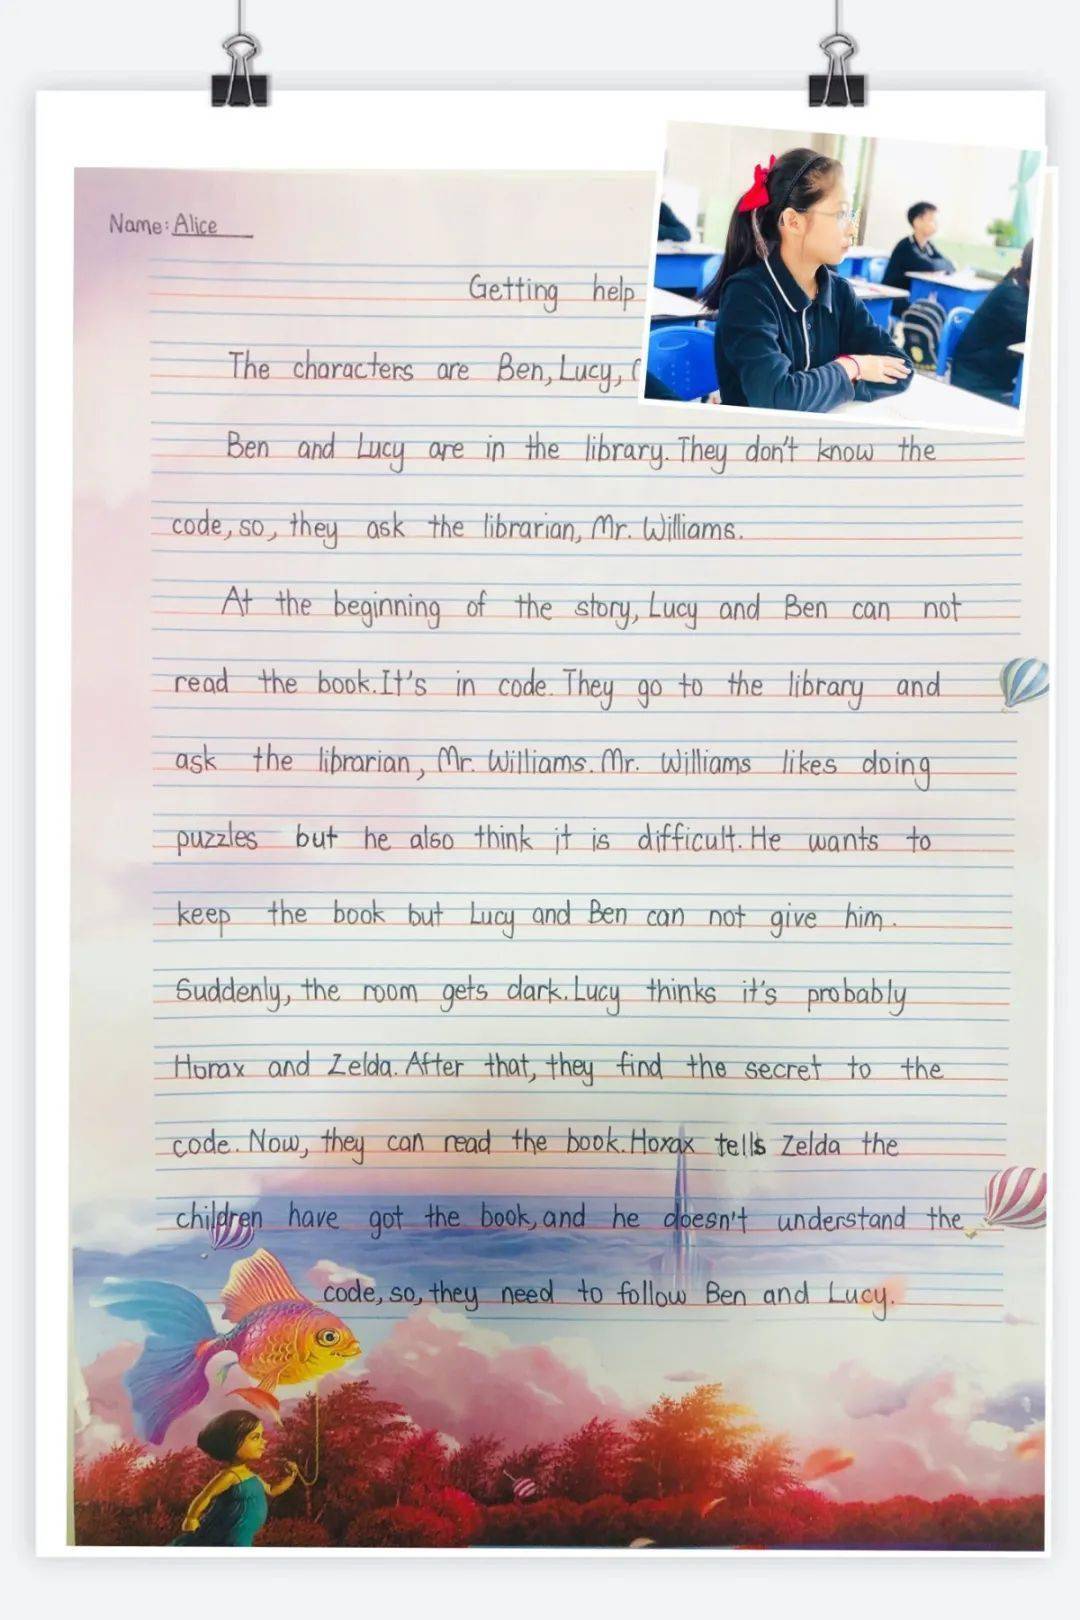 Name: Alice
Getting help
The characters are Ben, Lucy,
Ben and Lucy are in the library. They don't know the
code, so, they ask the librarian, Mr. Williams.
At the beginning of the story, Lucy and Ben can not
read the book. It's in code. They go to the library and
ask the librarian, Mr. Williams. Mr. Williams likes doing
puzzles but he also think it is difficult. He wants to
keep the book but Lucy and Ben can not give him.
Suddenly, the room gets dark. Lucy thinks it's probably
Horax and Zelda. After that, they find the secret to the
code. Now, they can read the book. Horax tells Zelda the
children have got the book, and he doesn't understand the
code, so, they need to follow Ben and Lucy.